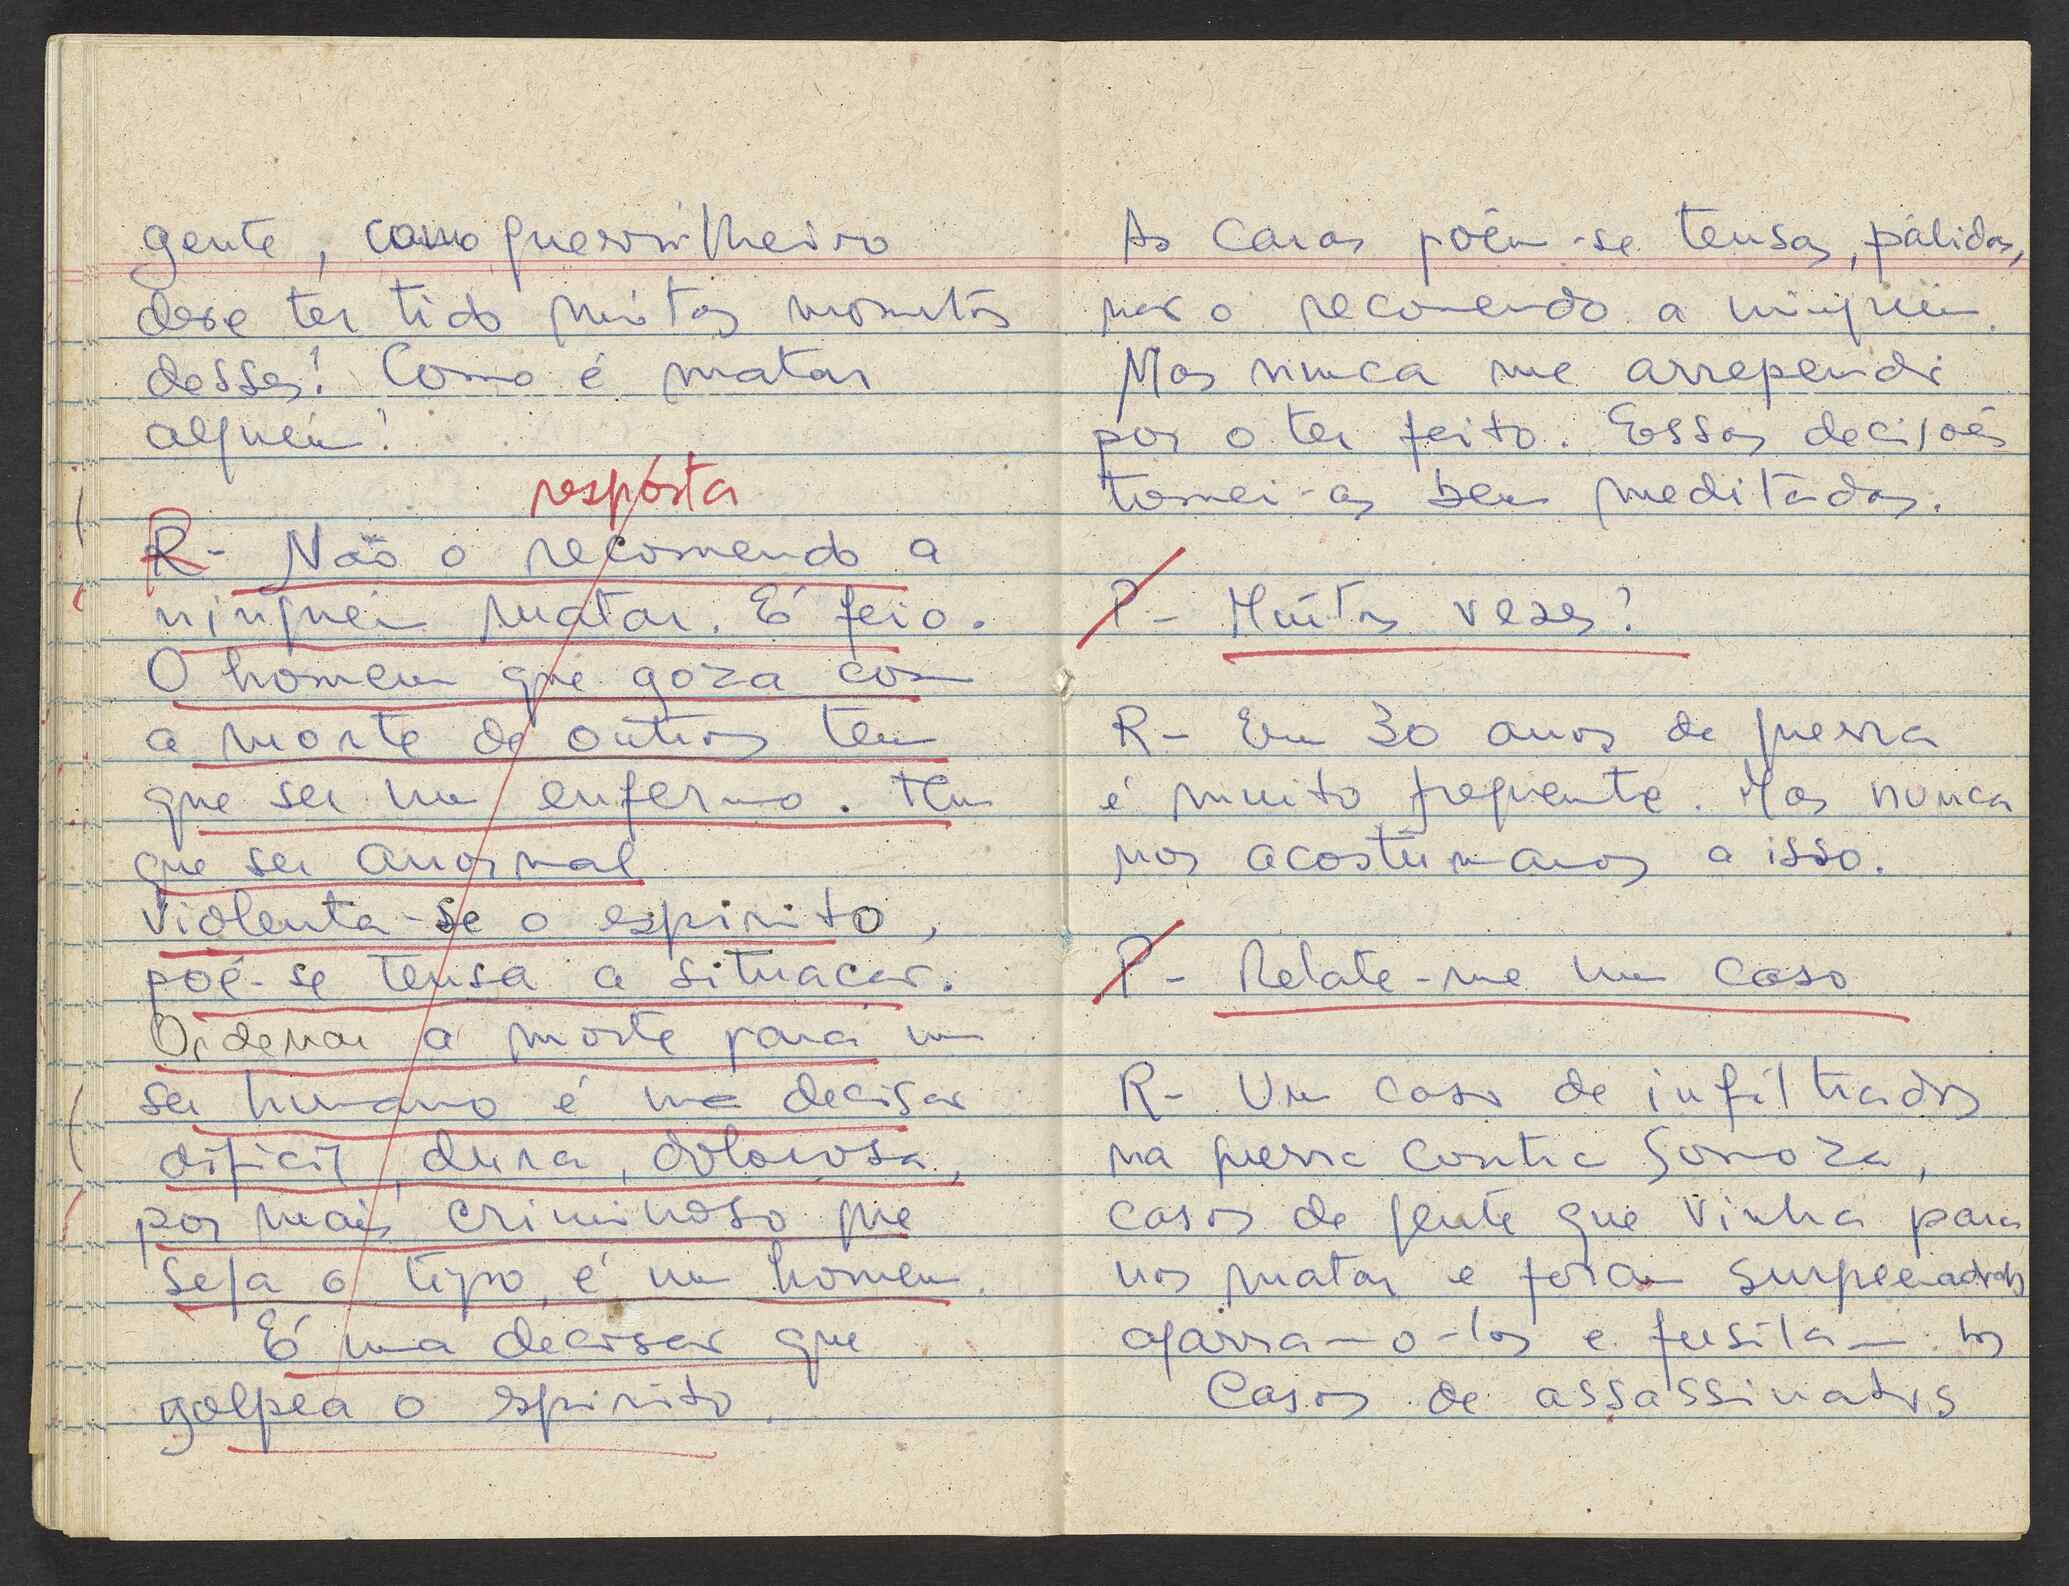 gente, como guerrilheiro
deve ter tido muitos momentos
desses? Como é matar
alguém?
resposta
R- Não o recomendo a
ninguém matar. É feio.
O homem que goza com
a morte de outros tem
que ser um enfermo. Tem
que ser anormal
Violenta-se o espirito,
põe-se tensa a situacao.
Ordenar a morte para um
ser humano é uma decisao
dificil, dura, dolorosa,
por mais criminoso que
seja o tipo, é um homem.
É uma decisao que
golpea o espirito.
As caras põem-se tensas, pálidas,
nao o recomendo a ninguém.
Mas nunca me arrependi
por o ter feito. Essas decisões
tomei-as bem meditadas.
P- Muitas vezes?
R- Em 30 anos de guerra
é muito frequente. Mas nunca
nos acostumamos a isso.
P- Relate-me um caso
R- Um caso de infiltrados
na guerra contra Somoza,
casos de gente que vinha para
nos matar e foram
agarramo-los e fusilam-los
Casos de assassinatos